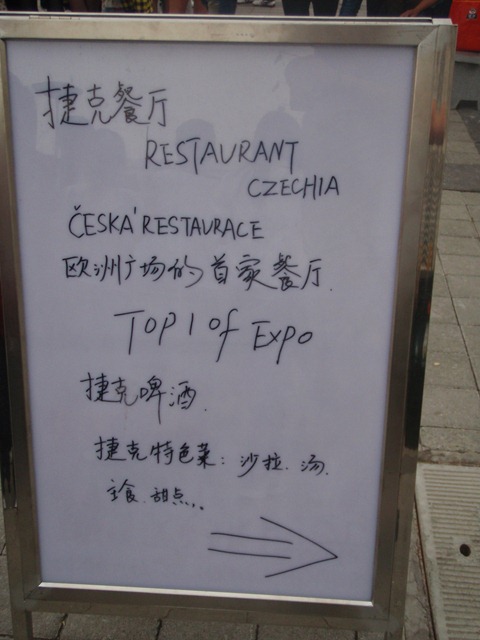 捷克餐厅
RESTAURANT
CZECHIA
ČESKÁ RESTAURACE
欧洲广场的首家餐厅.
TOP 1 of EXPO
捷克啤酒.
捷克特色菜: 沙拉. 汤.
主食. 甜点...